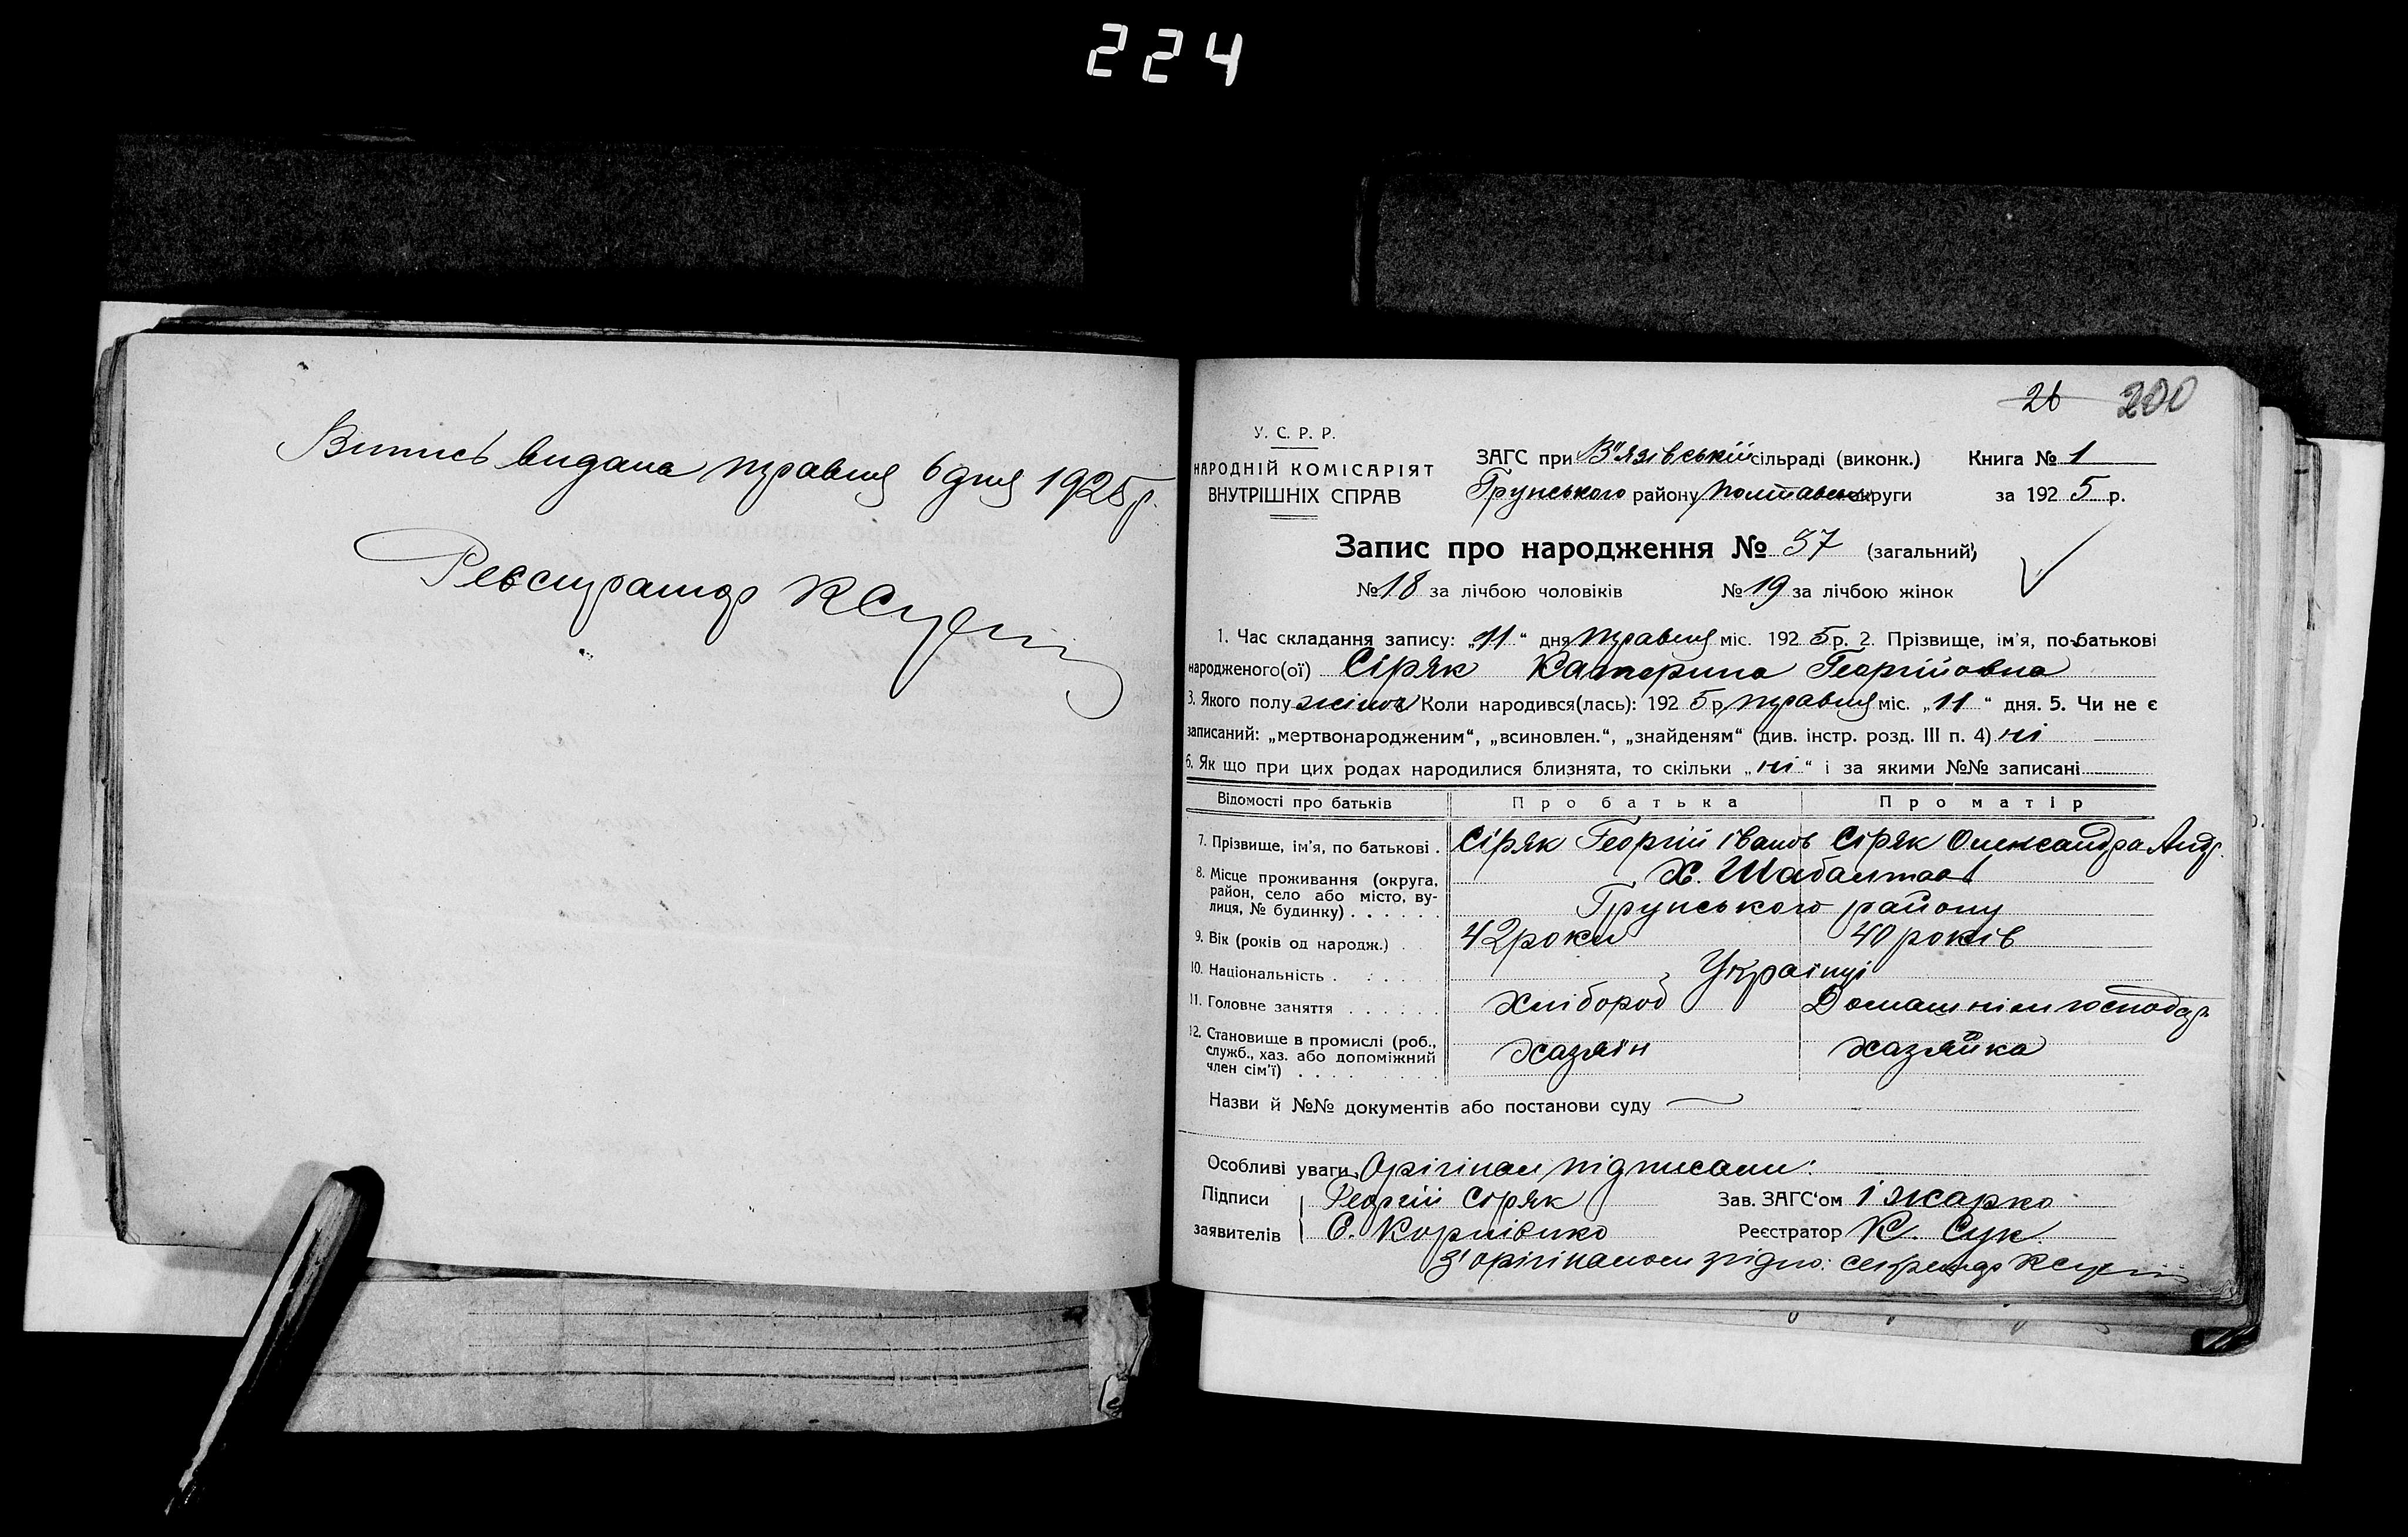 224
Випись видана травня 6 дня 1925 р.
Реєстратор КСук
26 200
У. С. Р. Р.
НАРОДНІЙ КОМІСАРІЯТ
ВНУТРІШНІХ СПРАВ
ЗАГС при В'язівській сільраді (виконк.) Книга № 1
Грунського району Полтавськ округи за 1925 р.
Запис про народження № 37 (загальний)
№ 18 за лічбою чоловіків № 19 за лічбою жінок
1. Час складання запису: „11“ дня травня міс. 1925 р. 2. Прізвище, ім'я, по-батькові
народженого(ої) Сіряк Катерина Георгійовна
3. Якого полу жіноч Коли народився(лась): 1925 р. травня міс. „11“ дня. 5. Чи не є
записаний: „мертвонародженим“, „всиновлен.“, „знайденям“ (див. інстр. розд. III п. 4) ні
6. Як що при цих родах народилися близнята, то скільки „ні“ і за якими №№ записані
Відомості про батьків Про батька Про матір
7. Прізвище, ім'я, по батькові . Сіряк Георгій Іванов Сіряк Олександра Андр.
8. Місце проживання (округа, район, село або місто, вулиця, № будинку) . . . . . . Х. Шабалтаєв
Грунського району
9. Вік (років од народж.) . . 42 роки 40 років
10. Національність . . . . . Українці
11. Головне заняття . . . . . . Хлібороб Домашнім господар
12. Становище в промислі (роб., служб., хаз. або допоміжний член сім'ї) . . . . . . хазяїн хазяйка
Назви й №№ документів або постанови суду
Особливі уваги Орігінал підписали:
Підписи Георгій Сіряк Зав. ЗАГС'ом І Жарко
заявителів О. Корнієнко Реєстратор К. Сук
З' орігіналом згідно: секретар КСук